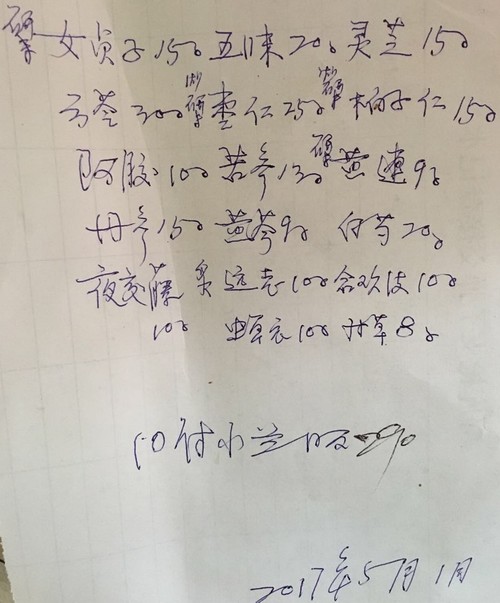 女贞子15g 五味20g 灵芝15g
云苓30g 枣仁25g 柏子仁15g
阿胶10g 苦参15g 黄連9g
丹参15g 黄芩9g 白芍20g
夜交藤 炙远志10g 合欢皮10g
10g 蝉衣10g 甘草8g
10付水兰服
2017年5月1日